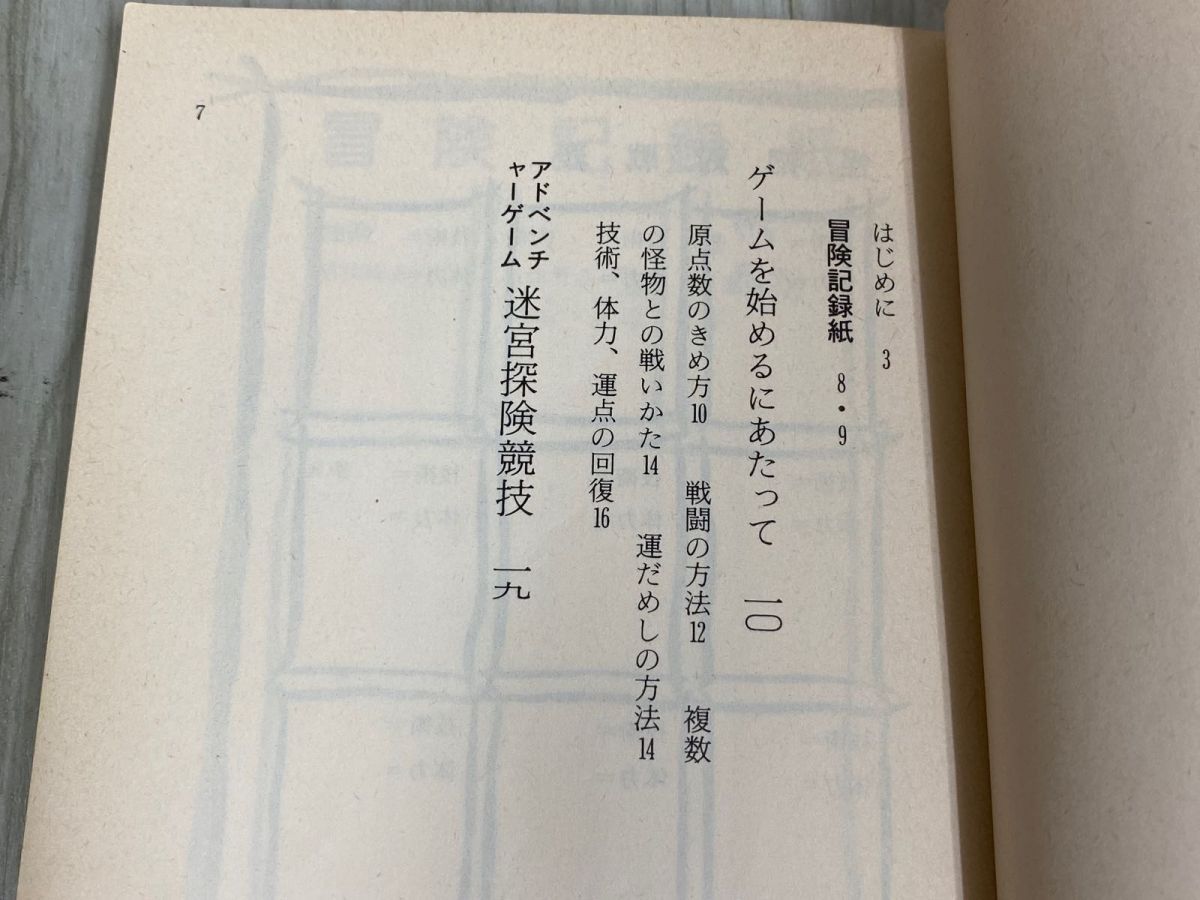 はじめに 3
冒険記録紙 8・9
ゲームを始めるにあたって 一〇
原点数のきめ方10 戦闘の方法12 複数
の怪物との戦いかた14 運だめしの方法14
技術、体力、運点の回復16
アドベンチ
ャーゲーム 迷宮探険競技 一九
7